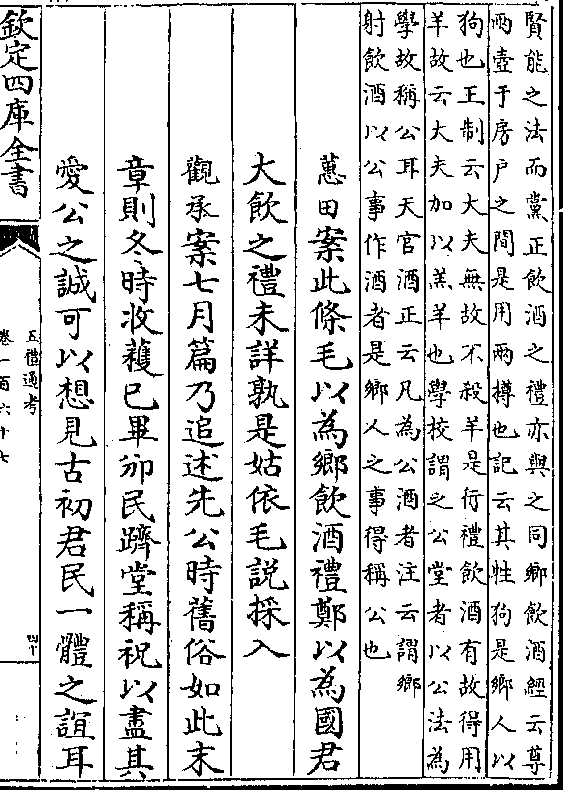 賢能之法而黨正飲酒之禮亦與之同鄉飲酒經云尊
兩壺于房戶之間是用兩樽也記云其牲狗是鄉人以
狗也王制云大夫無故不殺羊是行禮飲酒有故得用
羊故云大夫加以羔羊也學校謂之公堂者以公法為
學故稱公耳天官酒正云凡為公酒者注云謂鄉
射飲酒以公事作酒者是鄉人之事得稱公也
蕙田案此條毛以為鄉飲酒禮鄭以為國君
大飲之禮未詳孰是姑依毛說採入
觀承案七月篇乃追述先公時舊俗如此末
章則冬時收穫已畢卹民躋堂稱祝以盡其
愛公之誠可以想見古初君民一體之誼耳
欽定四庫全書
五禮通考
卷一百六十七
四十